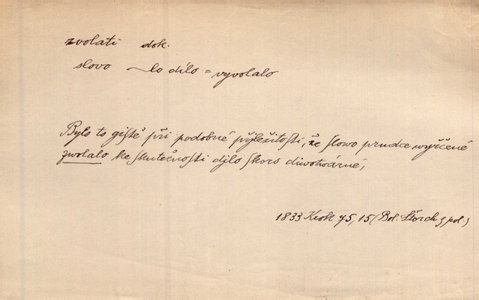 zvolati dok.
slovo ~lo dílo = vyvolalo
Bylo to gistě při podobné přjležitosti, že slowo prudce wyřčené
zwolalo ke skutečnosti djlo skoro diwotwárné,
1833 Krok 75, 15 (Bol. Štorch z pol.)